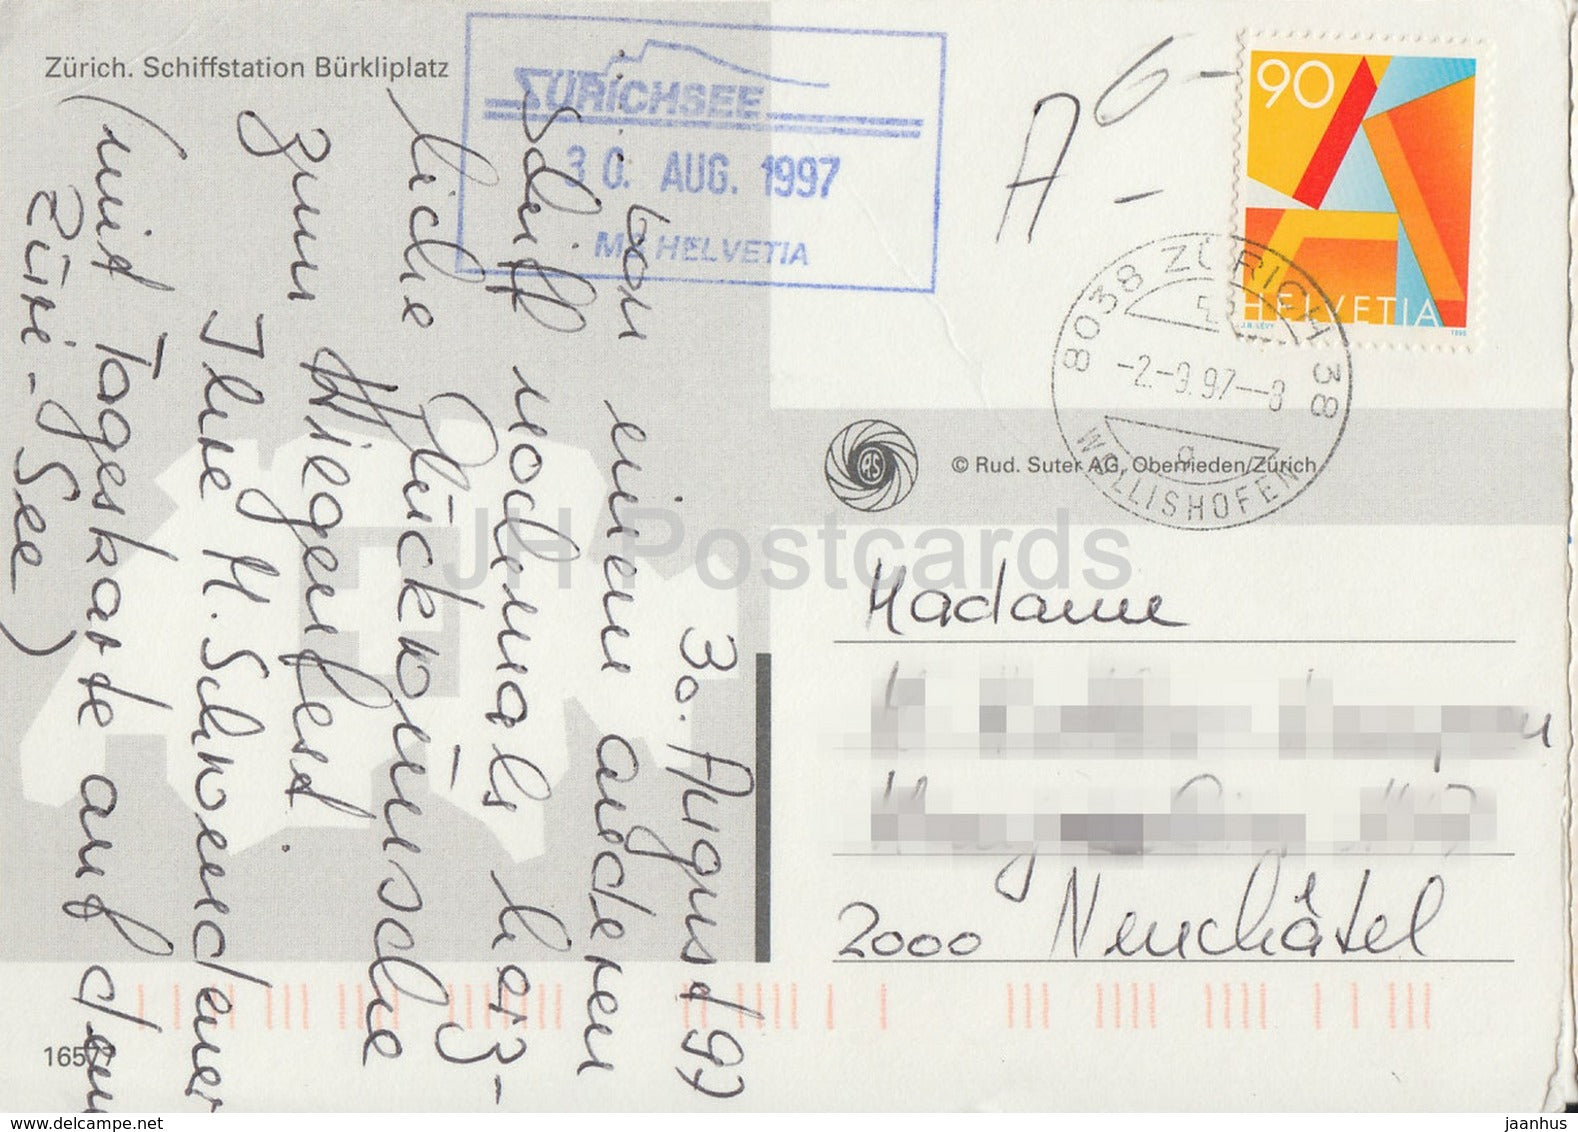 Zürich. Schiffstation Bürkliplatz
ZÜRICHSEE
30. AUG. 1997
MS HELVETIA
A-
6-
90
A
HELVETIA
J.B. LÉVY
1995
8038 ZÜRICH 38
-2.-9.97--8
WOLLISHOFEN
RS
© Rud. Suter AG, Oberrieden/Zürich
30. August 97
von einem anderen
Schiff nochmals herz-
liche Glückwünsche
zum Wiegenfest.
Ihre M. Schwendener
(mit Tageskarte auf dem
Züri-See)
Madame
2000 Neuchâtel
16577
JH Postcards
www.delcampe.net
jaanhus